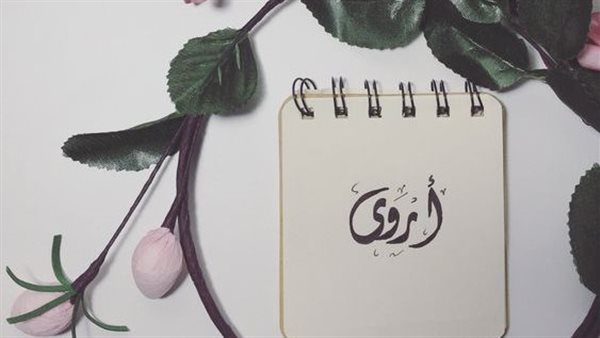 أَرْوَى